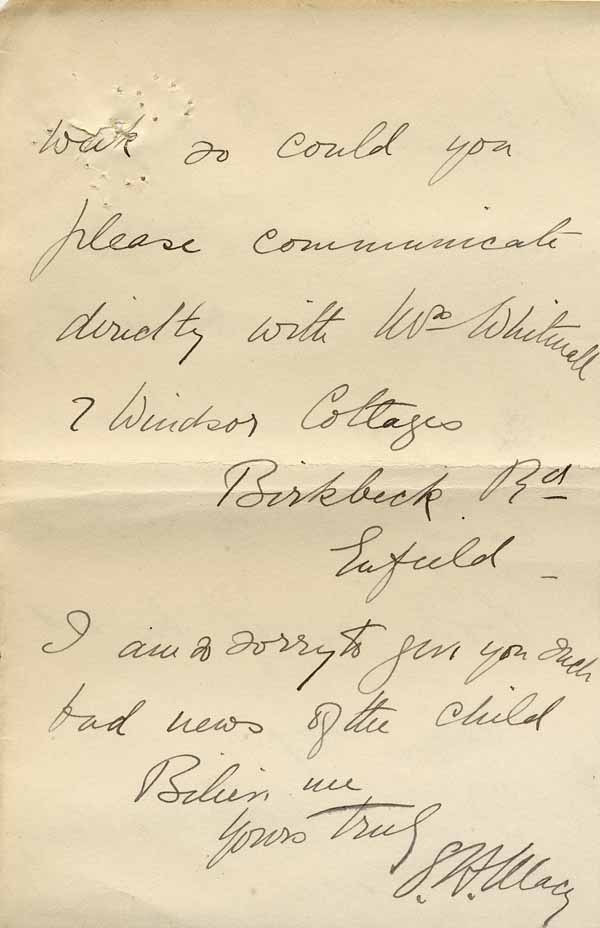 week so could you
please communicate
directly with Mrs Whitnall
7 Windsor Cottages
Birkbeck Rd
Enfield
I am so sorry to give you such
bad news of the child
Believe me
Yours truly
S. H. Macy